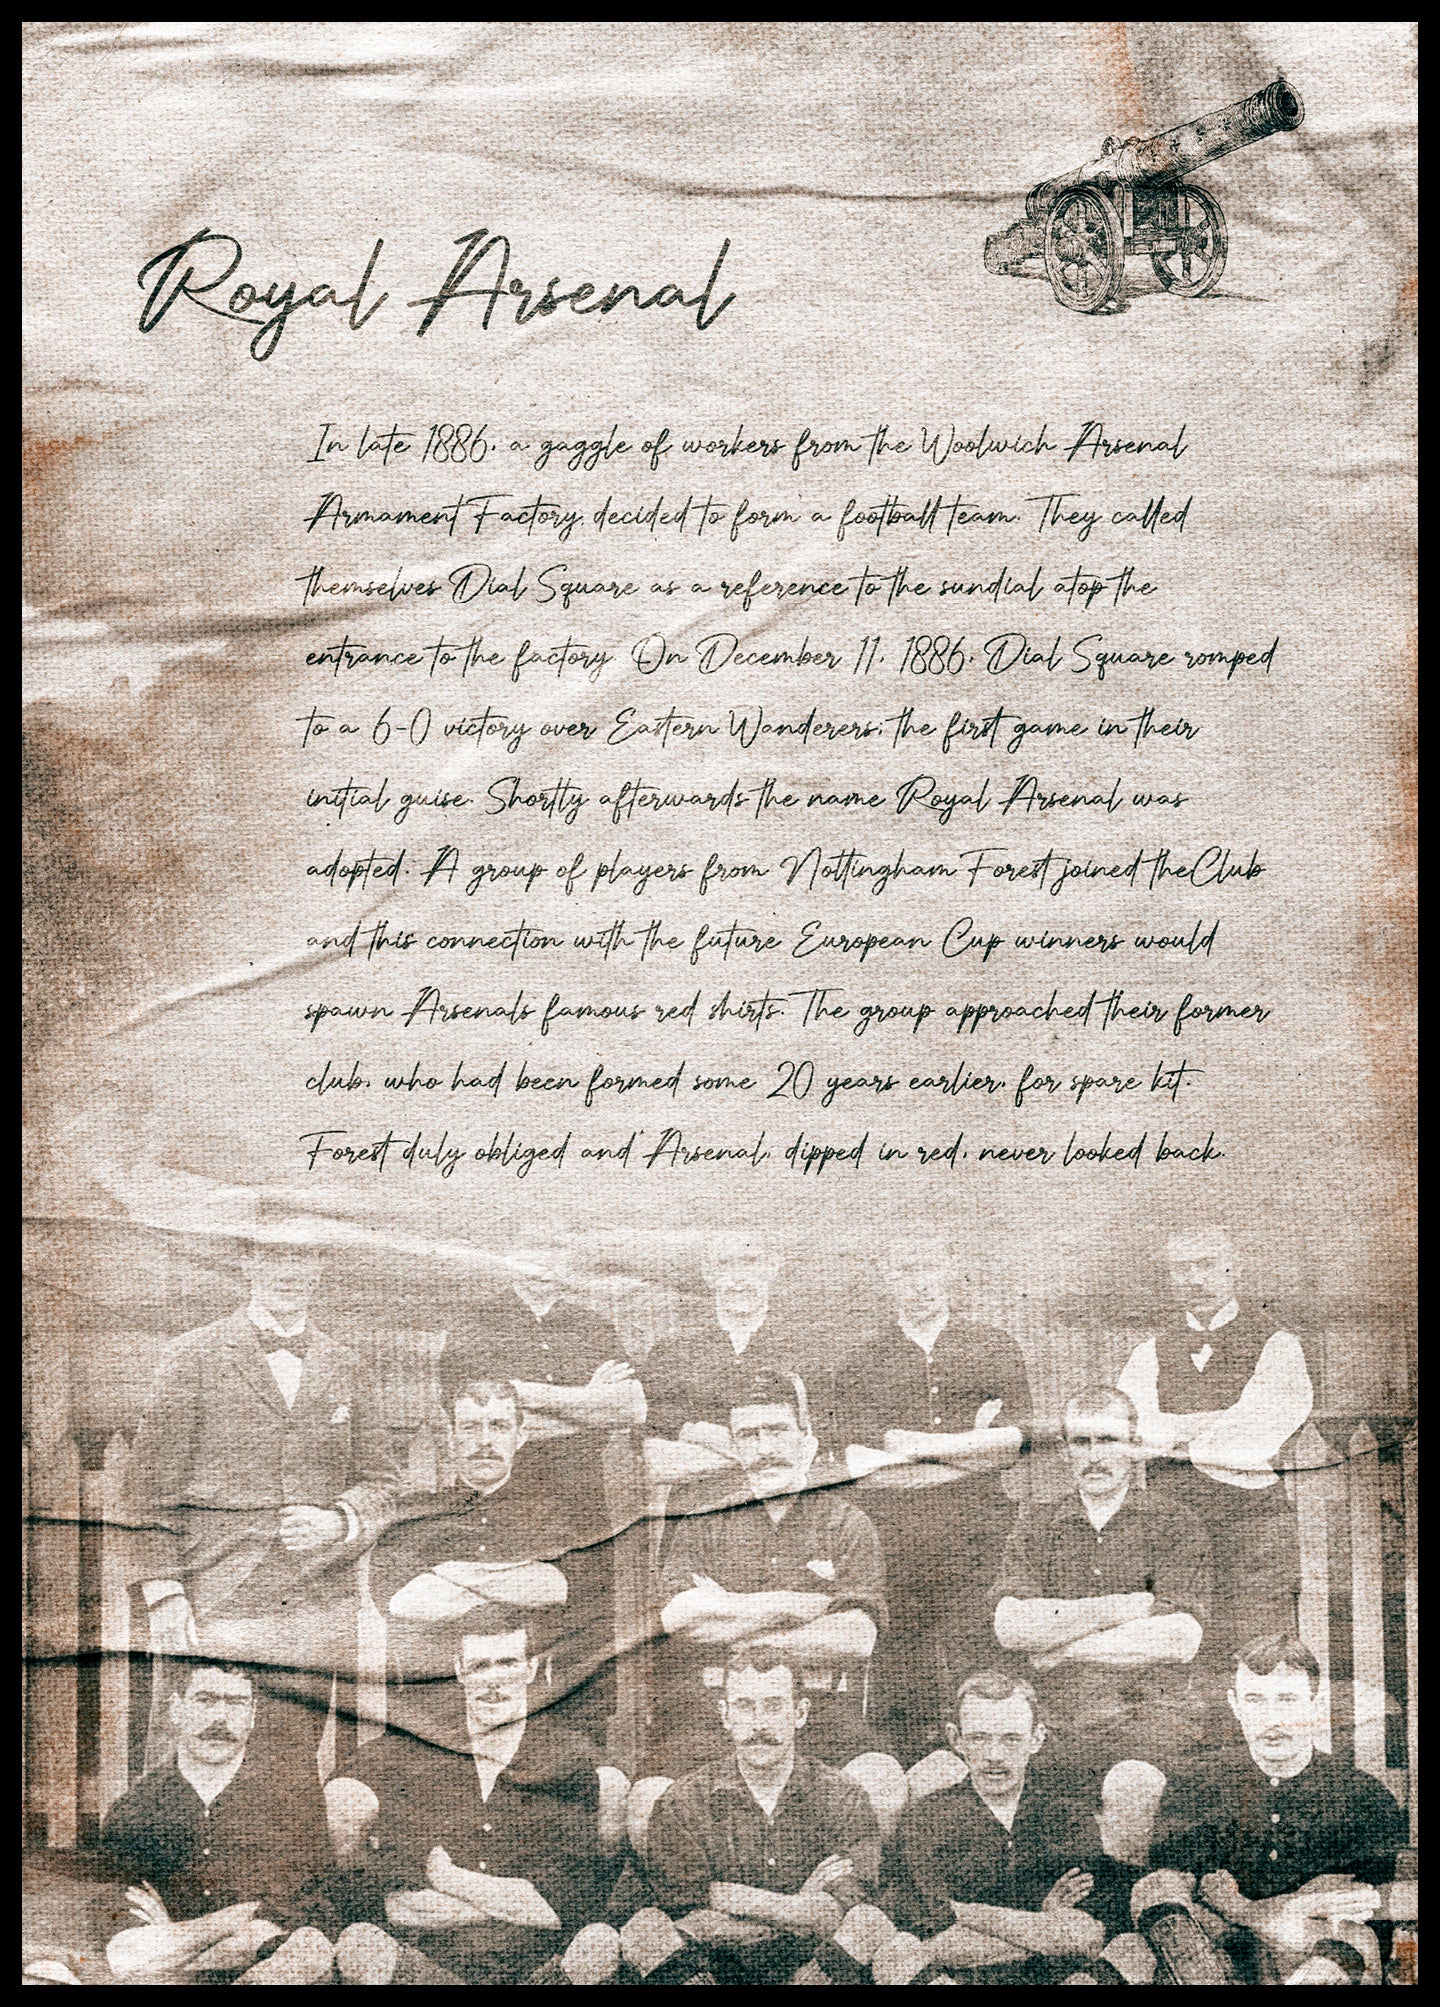 Royal Arsenal
In late 1886, a gaggle of workers from the Woolwich Arsenal
Armament Factory, decided to form a football team. They called
themselves Dial Square as a reference to the sundial atop the
entrance to the factory. On December 11, 1886, Dial Square romped
to a 6-0 victory over Eastern Wanderers; the first game in their
initial guise. Shortly afterwards the name Royal Arsenal was
adopted. A group of players from Nottingham Forest joined theClub
and this connection with the future European Cup winners would
spawn Arsenals famous red shirts. The group approached their former
club, who had been formed some 20 years earlier, for spare kit.
Forest duly obliged and Arsenal, dipped in red, never looked back.